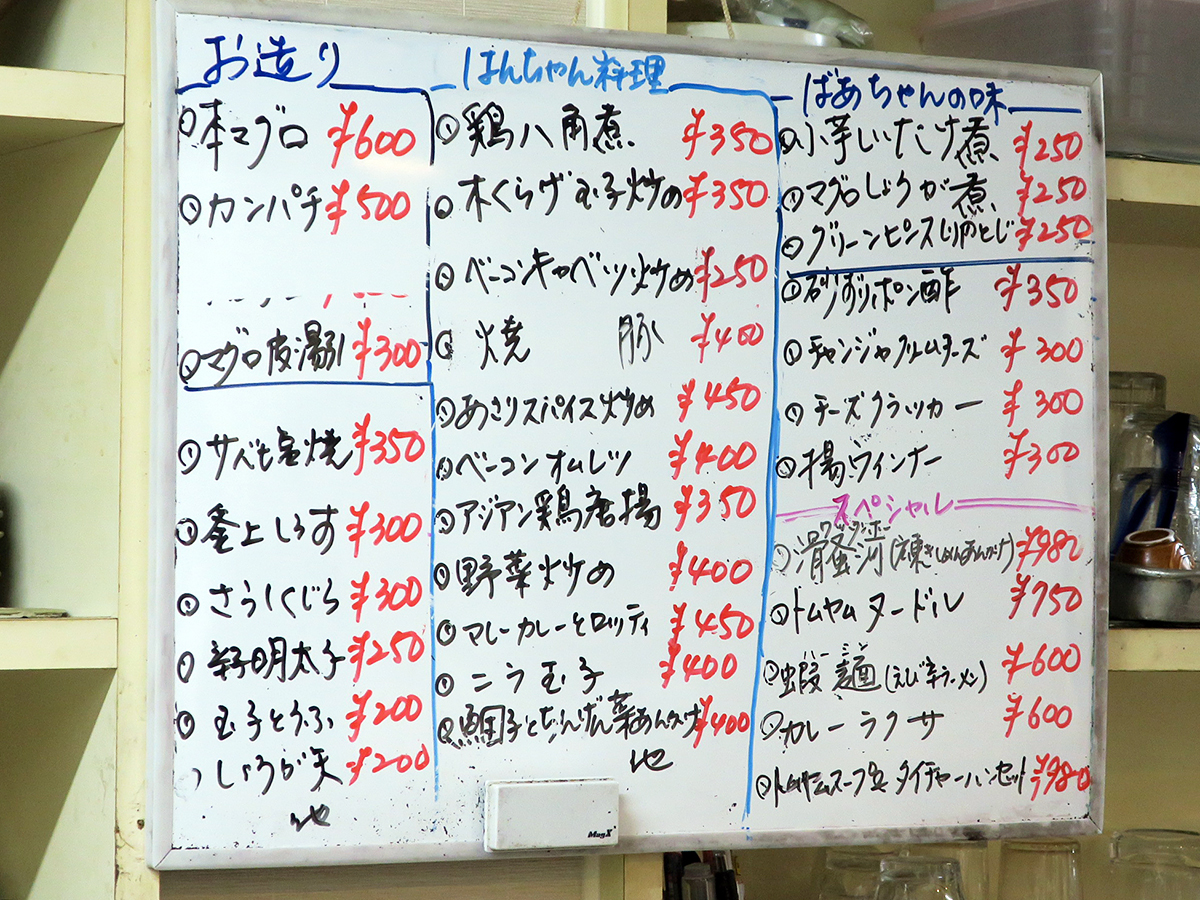 お造り
本マグロ ¥600
カンパチ ¥500
マグロ皮湯引 ¥300
サバ塩焼 ¥350
釜上しらす ¥300
さらしくじら ¥300
辛子明太子 ¥250
玉子とうふ ¥200
しょうが天 ¥200
他
はんちゃん料理
鶏八角煮 ¥350
木くらげ玉子炒め ¥350
ベーコンキャベツ炒め ¥250
焼 豚 ¥400
あさりスパイス炒め ¥450
ベーコンオムレツ ¥400
アジアン鶏唐揚 ¥350
野菜炒め ¥400
マレーカレーとロッティ ¥450
ニラ玉子 ¥400
鯛子とちんげん菜あんかけ ¥400
他
ばあちゃんの味
小芋しいたけ煮 ¥250
マグロしょうが煮 ¥250
グリーンピンス玉子とじ ¥250
砂ずりポン酢 ¥350
チャンジャクリームチーズ ¥300
チーズクラッカー ¥300
揚ウィンナー ¥300
スペシャル
滑蛋河 ¥980
トムヤムヌードル ¥750
蝦麺(えび辛ラーメン) ¥600
カレーラクサ ¥600
トムヤムスープ&タイチャーハンセット ¥980
MagX